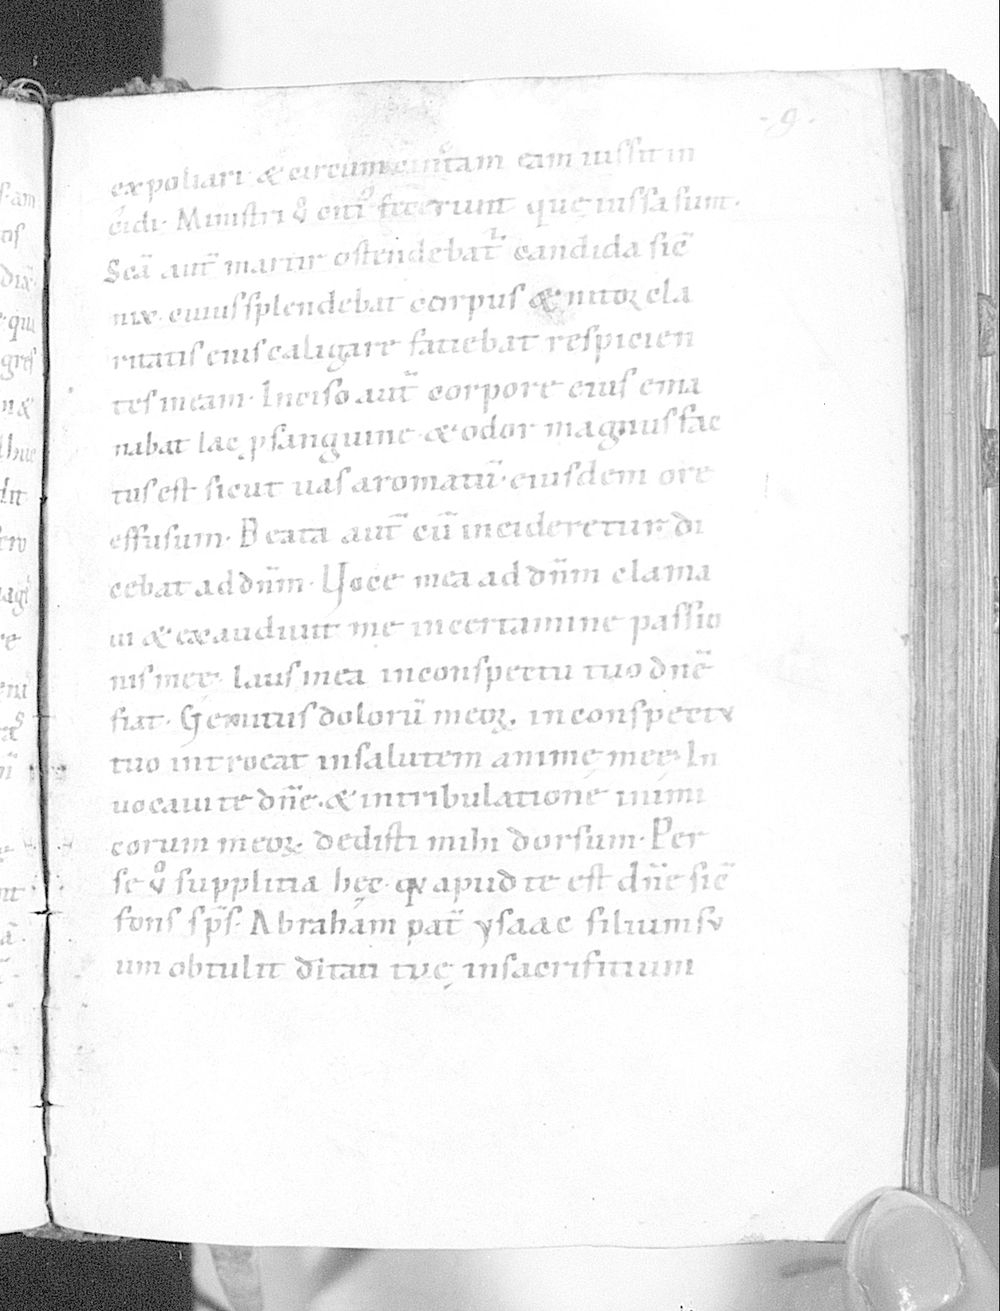 ·9·
expoliari & circum eam iussit in
cidi. Ministri ů citi᷒ fecerunt quę iussa sunt.
Sc̄a aut̄ martir ostendebat᷑ candida sic̄
nix. cuius splendebat corpus & nitor cla
ritatis eius caligare faciebat respicien
tes in eam. Inciso aut̄ corpore eius ema
nabat lac ꝓ sanguine. & odor magnus fac
tus est sicut uas aromatū. eiusdem ore
effusum. Beata aut̄ cū incideretur di
cebat ad dn̄m. Voce mea ad dn̄m clama
ui & exaudiuit me in certamine passio
nis meę. Laus mea in conspectu tuo dn̄e
fiat. Gemitus dolorū meoꝝ. in conspectu
tuo introeat in salutem animę meę. In
uocaui te dn̄e. & in tribulatione inimi
corum meoꝝ. dedisti mihi dorsum. Per
se ů supplitia hęc. qꝫ apud te est dn̄e sic̄
fons sp̄s. Abraham pat̄ ysaac filium su
um obtulit ditati tuę in sacrifitium